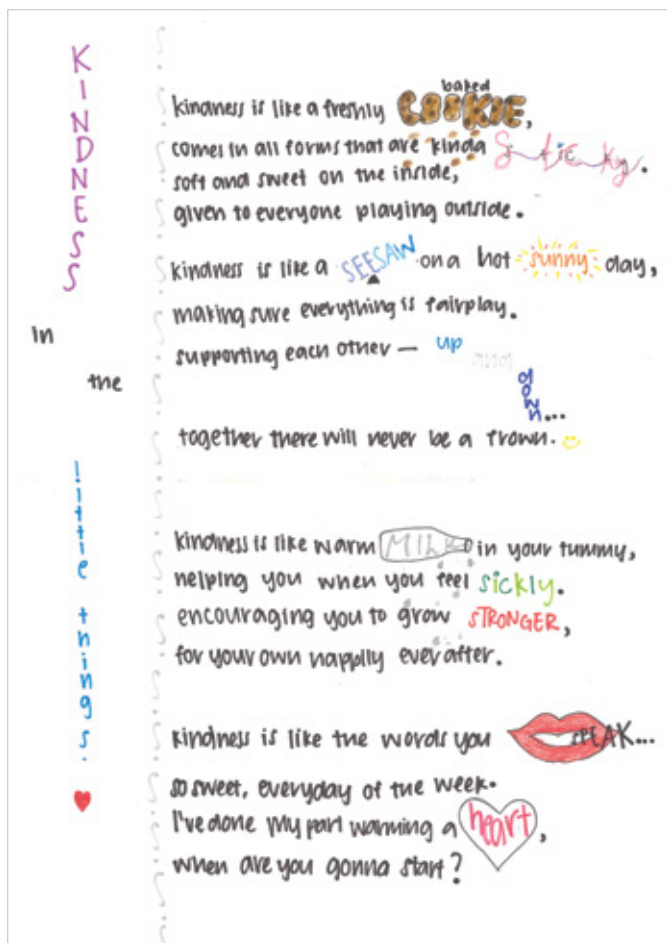 KINDNESS
in
the
little things.
kindness is like a freshly baked COOKIE,
comes in all forms that are kinda sticky.
soft and sweet on the inside,
given to everyone playing outside.
kindness is like a SEESAW on a hot sunny day,
making sure everything is fairplay.
supporting each other — up and down...
together there will never be a frown.
kindness is like warm MILK in your tummy,
helping you when you feel sickly.
encouraging you to grow STRONGER,
for your own happily ever after.
kindness is like the words you SPEAK...
so sweet, everyday of the week.
I've done my part warming a heart,
when are you gonna start?